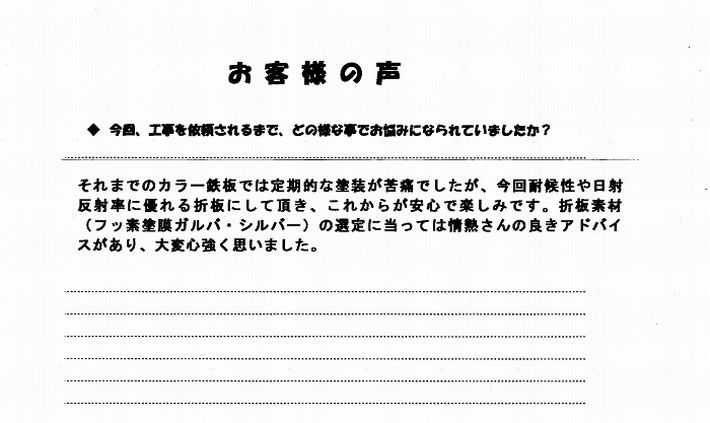 お客様の声
◆ 今回、工事を依頼されるまで、どの様な事でお悩みになられていましたか？
それまでのカラー鉄板では定期的な塗装が苦痛でしたが、今回耐候性や日射
反射率に優れる折板にして頂き、これからが安心で楽しみです。折板素材
（フッ素塗膜ガルバ・シルバー）の選定に当っては情熱さんの良きアドバイ
スがあり、大変心強く思いました。